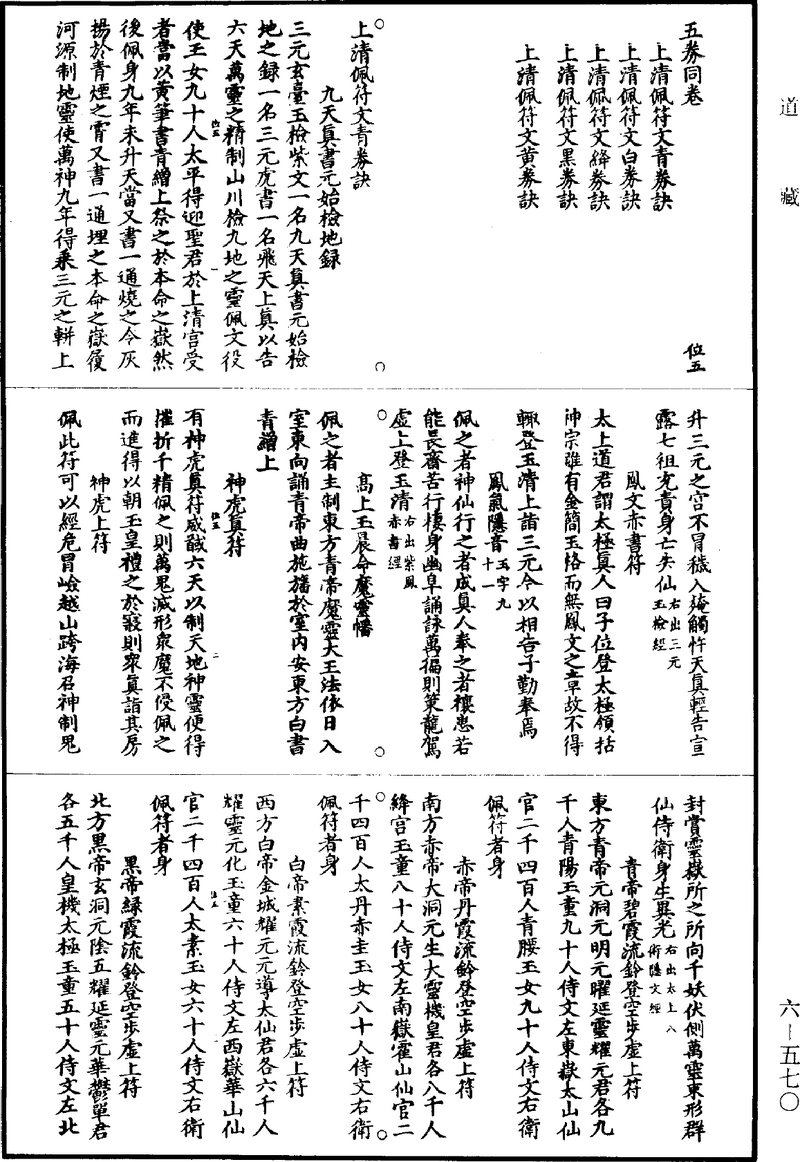 道藏
五券同卷
位五
上清佩符文青券訣
上清佩符文白券訣
上清佩符文絳券訣
上清佩符文黑券訣
上清佩符文黄券訣
上清佩符文青券訣
九天真書元始檢地録
三元玄臺玉檢紫文一名九天真書元始檢
地之録一名三元虎書一名飛天上真以告
六天萬靈之精制山川檢九地之靈佩文役
使玉女九十人太平得迎聖君於上清宫受
者當以黄筆書青繒上祭之於本命之嶽然
後佩身九年未升天當又書一通燒之令灰
揚於青煙之霄又書一通埋之本命之嶽履
河源制地靈使萬神九年得乘三元之輧上
升三元之宫不冒穢入殗觸忤天真輕告宣
露七祖充責身亡失仙右出三元玉檢經
鳳文赤書符
太上道君謂太極真人曰子位登太極領括
神宗雖有金簡玉格而無鳳文之章故不得
輙登玉清上詣三元今以相告子勤奉焉
鳳氣隱音玉字九十一
佩之者神仙行之者成真人奉之者禳患若
能長齋苦行棲身幽阜誦詠萬徧則策龍駕
虚上登玉清右出紫鳳赤書經
髙上玉晨命魔靈幡
佩之者主制東方青帝魔靈大王法依日入
室東向誦青帝曲施旛於室内安東方白書
青繒上
神虎真符
有神虎真符威馘六天以制天地神靈便得
摧折千精佩之則萬鬼滅形衆魔不侵佩之
而進得以朝玉皇禮之於寢則衆真詣其房
神虎上符
佩此符可以經危冒嶮越山跨海召神制鬼
封賞靈嶽所之所向千妖伏側萬靈束形群
仙侍衛身生異光右出太上八術隱文經
青帝碧霞流鈴登空步虚上符
東方青帝元洞元明元曜延靈耀元君各九
千人青陽玉童九十人侍文左東嶽太山仙
官二千四百人青腰玉女九十人侍文右衛
佩符者身
赤帝丹霞流鈴登空步虚上符
南方赤帝大洞元生大靈機皇君各八千人
絳宫玉童八十人侍文左南嶽霍山仙官二
千四百人太丹赤圭玉女八十人侍文右衛
佩符者身
白帝素霞流鈴登空步虚上符
西方白帝金城耀元元導太仙君各六千人
耀靈元化玉童六十人侍文左西嶽華山仙
官二千四百人太素玉女六十人侍文右衛
佩符者身
黒帝緑霞流鈴登空步虚上符
北方黒帝玄洞元陰五耀延靈元華鬱單君
各五千人皇機太極玉童五十人侍文左北
六－五七〇